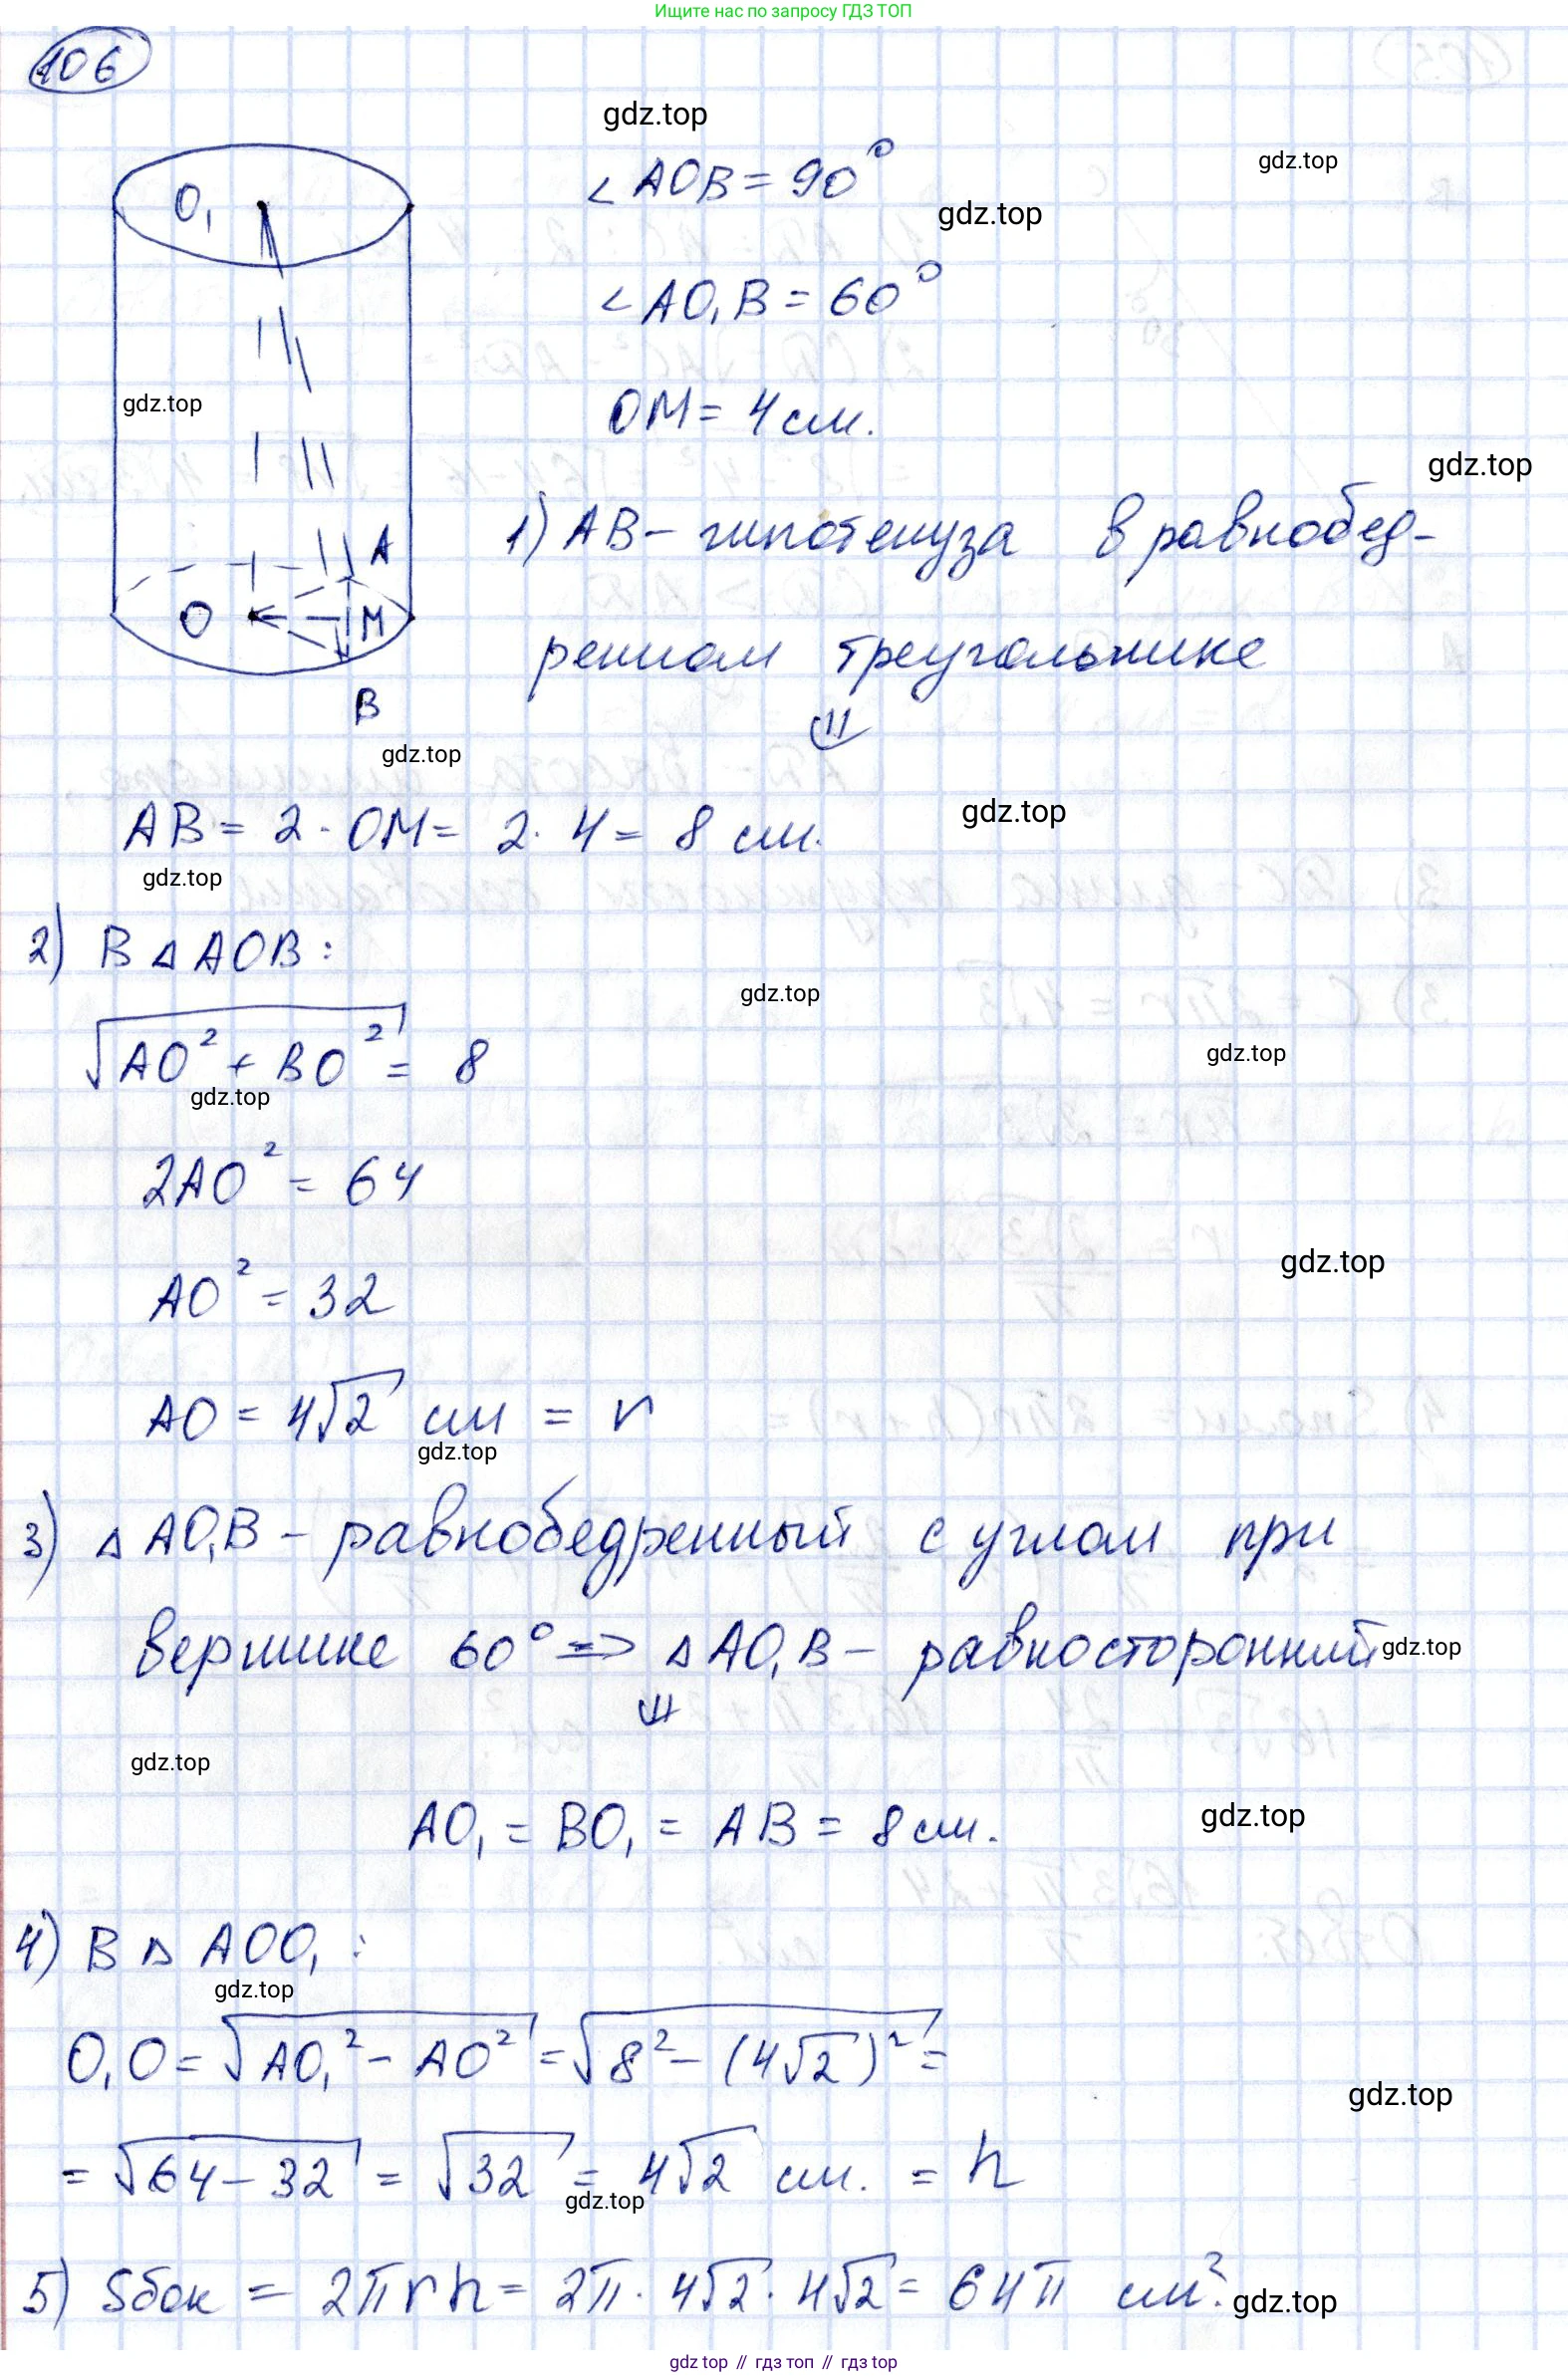 Ищите нас по запросу ГДЗ ТОП
106
gdz.top
∠AOB = 90°
gdz.top
gdz.top
O₁
∠AO₁B = 60°
gdz.top
OM = 4 см.
gdz.top
1) AB - гипотенуза в равнобед-
A
O
M
ренном треугольнике
B
⇓
gdz.top
AB = 2 · OM = 2 · 4 = 8 см.
gdz.top
gdz.top
2) В △ AOB:
gdz.top
√(AO² + BO²) = 8
gdz.top
gdz.top
2AO² = 64
gdz.top
AO² = 32
AO = 4√2 см = r
gdz.top
3) △ AO₁B - равнобедренный с углом при
вершине 60° => △ AO₁B - равносторонний
gdz.top
⇓
gdz.top
AO₁ = BO₁ = AB = 8 см.
gdz.top
4) В △ AOO₁:
gdz.top
O₁O = √(AO₁² - AO²) = √(8² - (4√2)²) =
gdz.top
= √(64 - 32) = √32 = 4√2 см. = h
gdz.top
5) Sбок = 2πrh = 2π · 4√2 · 4√2 = 64π см².
gdz.top
gdz top // гдз топ // gdz.top